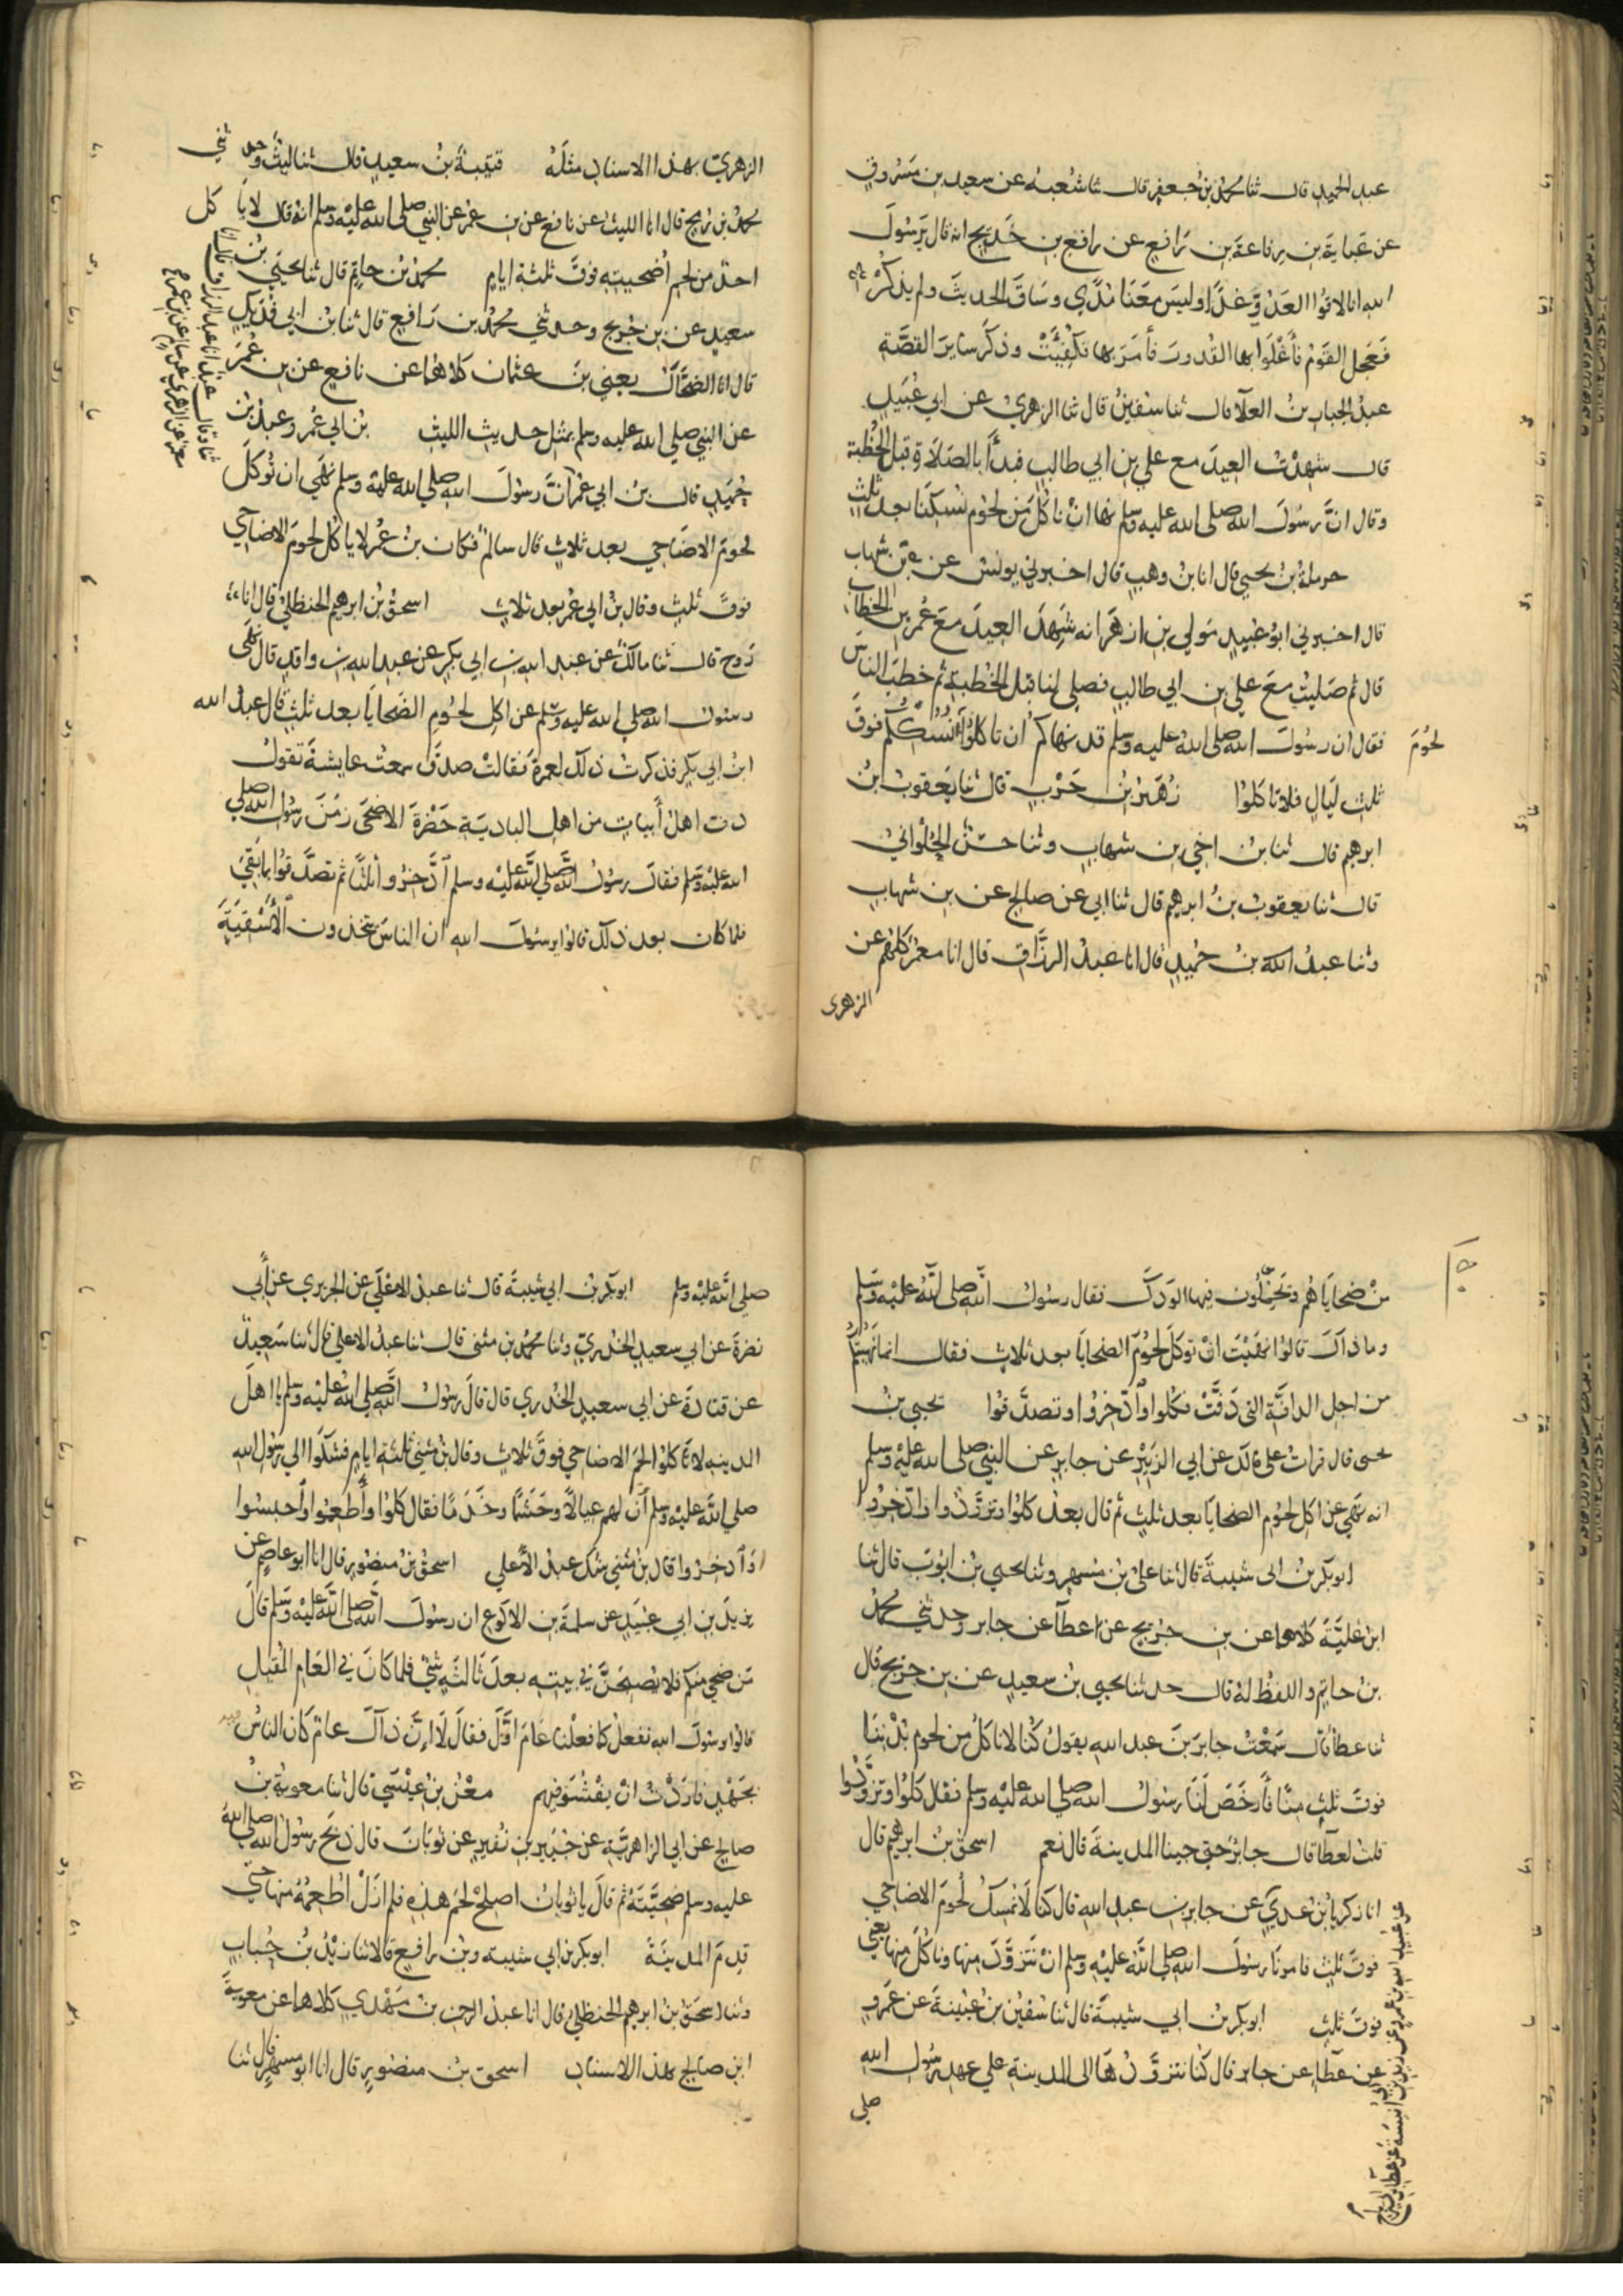 عبد الحميد قال ثنا محمد بن جعفر قال ثنا شعبة عن سعيد بن مسروق
عن عباية بن رفاعة بن رافع عن رافع بن خديج انه قال يرسول
الله انا لاقوا العدو غدا وليس معنا مدي وساق الحديث ولم يذكر
فعجل القوم فأغلوا بها القدور فأمر بها فكفيت وذكر ساير القصة
عبد الجبار بن العلا قال ثنا سفين قال ثنا الزهري عن ابي عبيد
قال شهدت العيد مع علي بن ابي طالب فبدأ بالصلاة قبل الخطبة
وقال ان رسول الله صلى الله عليه وسلم نهانا ان ناكل من لحوم نسكنا بعد ثلث
حرملة بن يحيى قال انا بن وهب قال اخبرني يونس عن بن شهاب
قال اخبرني ابو عبيد مولي بن ازهر انه شهد العيد مع عمر بن الخطاب
قال ثم صليت مع علي بن ابي طالب فصلي لنا قبل الخطبة ثم خطب الناس
فقال ان رسول الله صلى الله عليه وسلم قد نهاكم ان تاكلوا نسككم فوق
لحوم
ثلث ليال فلا تاكلوا زهير بن حرب قال ثنا يعقوب بن
ابرهيم قال ثنا بن اخي بن شهاب وثنا حسن الحلواني
قال ثنا يعقوب بن ابرهيم قال ثنا ابي عن صالح عن بن شهاب
وثنا عبد بن حميد قال انا عبد الرزاق قال انا معمر كلهم عن
الزهرى
الزهري بهذا الاسناد مثله قتيبة بن سعيد قال ثنا ليث وحد ثني
محمد بن رمح قال انا الليث عن نافع عن بن عمر عن النبي صلي الله عليه وسلم انه قال لا يا كل
احد من لحم أضحيته فوق ثلثة ايام محمد بن حاتم قال ثنا يحيى بن
سعيد عن بن جريج وحدثني محمد بن رافع قال ثنا بن ابي فديك
قال انا الضحاك يعني بن عثمان كلاهما عن نافع عن بن عمر
عن النبي صلي الله عليه وسلم بمثل حديث الليث بن ابي عمر وعبد بن
حميد قال بن ابي عمر ثنا وقال عبد انا عبد الرزاق قال انا
معمر عن الزهري عن سالم عن بن عمر
ان رسول الله صلي الله عليه وسلم نهي ان توكل
لحوم الاضاحي بعد ثلاث قال سالم فكان بن عمر لا ياكل لحوم الاضاحي
فوق ثلث وقال بن ابي عمر بعد ثلاث اسحق بن ابرهيم الحنظلي قال انا
روح قال ثنا مالك عن عبد الله بن ابي بكر عن عبد الله بن واقد قال نهى
رسول الله صلي الله عليه وسلم عن اكل لحوم الضحايا بعد ثلث قال عبد الله
ابن ابي بكر فذكرت ذلك لعمرة فقالت صدق سمعت عايشة تقول
دف اهل أبيات من اهل البادية حضرة الاضحى زمن رسول الله صلي
الله عليه وسلم فقال رسول الله صلي الله عليه وسلم ادخروا ثلثا ثم تصدقوا بما بقي
فلما كان بعد ذلك قالوا يرسول الله ان الناس يتخذون الأسقية
من ضحاياهم وتحملون فيها الودك فقال رسول الله صلى الله عليه وسلم
وما ذاك قالوا نهيت ان توكل لحوم الضحايا بعد ثلاث فقال انما نهيتكم
من اجل الدافة التي دفت فكلوا وادخروا وتصدقوا يحيي بن
يحيى قال قرات على مالك عن ابي الزبير عن جابر عن النبي صلى الله عليه وسلم
انه نهي عن اكل لحوم الضحايا بعد ثلث ثم قال بعد كلوا وتزودوا وادخروا
ابو بكر بن ابى شيبة قال ثنا علي بن مسهر وثنا يحيي بن ايوب قال ثنا
ابن علية كلاهما عن بن جريج عن عطآ عن جابر وحدثني محمد
بن حاتم واللفظ له قال حدثنا يحيى بن سعيد عن بن جريج قال
ثنا عطا قال سمعت جابر بن عبد الله يقول كنا لا ناكل من لحوم بدننا
فوق ثلث منا فأرخص لنا رسول الله صلي الله عليه وسلم فقال كلوا وتزودوا
قلت لعطا قال جابر حتى جينا المدينة قال نعم اسحق بن ابرهيم قال
انا زكريا بن عدي عن عبيد الله بن عمرو عن زيد بن ابي انيسة عن عطا بن ابي رباح
عن جابر بن عبد الله قال كنا لا نمسك لحوم الاضاحي
فوق ثلث فامرنا رسول الله صلي الله عليه وسلم ان نتزود منها وناكل منها يعني
فوق ثلث ابو بكر بن ابي شيبة قال ثنا سفين بن عيينة عن عمرو
عن عطا عن جابر قال كنا نتزودها الى المدينة علي عهد رسول الله
صلى
صلي الله عليه وسلم ابو بكر بن ابي شيبة قال ثنا عبد الاعلي عن الجريري عن أبي
نضرة عن ابي سعيد الخدري وثنا محمد بن مثنى قال ثنا عبد الاعلي قال ثنا سعيد
عن قتادة عن ابي سعيد الخدري قال قال رسول الله صلي الله عليه وسلم يا اهل
المدينه لا تاكلوا لحم الاضاحي فوق ثلاث وقال بن مثني ثلثة ايام فشكوا الي رسول الله
صلي الله عليه وسلم أن لهم عيالا وحشما وخدما فقال كلوا وأطعموا واحبسوا
او ادخروا قال بن مثني شك عبد الأعلي اسحق بن منصور قال انا ابو عاصم عن
يزيد بن ابي عبيد عن سلمة بن الاكوع ان رسول الله صلى الله عليه وسلم قال
من ضحي منكم فلا يصبحن في بيته بعد ثالثه شي فلما كان في العام المقبل
قالوا يرسول الله نفعل كما فعلنا عام اول فقال لا إن ذاك عام كان الناس فيه
بجهد فاردت ان يفشوا فيهم معن بن عيسي قال ثنا معوية بن
صالح عن ابي الزاهرية عن جبير بن نفير عن ثوبان قال ذبح رسول الله صلي الله
عليه وسلم ضحيته ثم قال يا ثوبان اصلح لحم هذه فلم ازل اطعمه منها حتي
قدم المدينة ابو بكر بن ابي شيبه وبن رافع قالا ثنا زيد بن حباب
وثنا اسحق بن ابرهيم الحنظلي قال انا عبد الرحمن بن مهدي كلاهما عن معوية
ابن صالح بهذا الاسناد اسحق بن منصور قال انا ابو مسهر قال ثنا